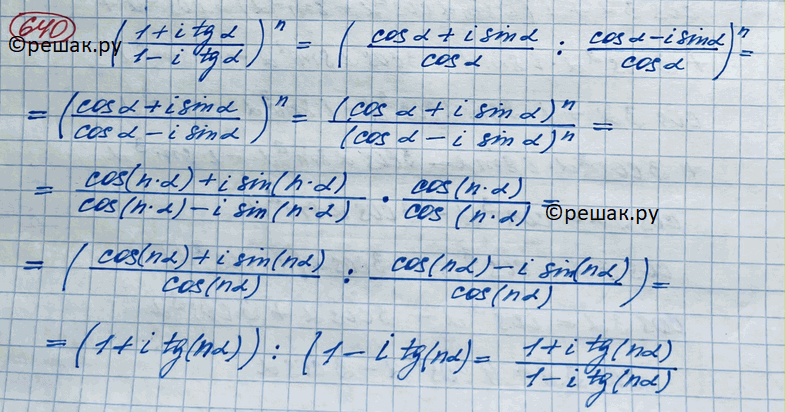 640 ((1 + i tg α)/(1 - i tg α))^n = ((cos α + i sin α)/(cos α) : (cos α - i sin α)/(cos α))^n =
©решак.ру
= ((cos α + i sin α)/(cos α - i sin α))^n = ((cos α + i sin α)^n)/((cos α - i sin α)^n) =
= (cos(n·α) + i sin(n·α))/(cos(n·α) - i sin(n·α)) · (cos(n·α))/(cos(n·α)) =
©решак.ру
= ((cos(nα) + i sin(nα))/(cos(nα)) : (cos(nα) - i sin(nα))/(cos(nα))) =
= (1 + i tg(nα)) : (1 - i tg(nα) = (1 + i tg(nα))/(1 - i tg(nα))